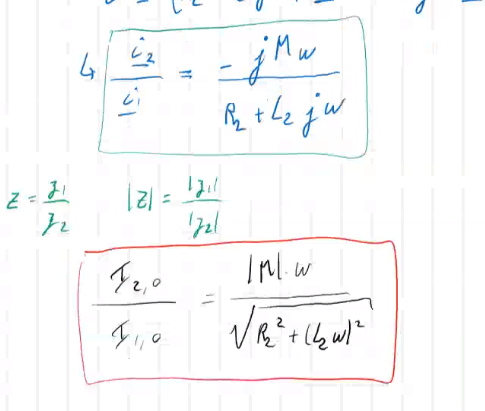 ↳ i₂/i₁ = -jMω/(R₂ + L₂jω)
z = z₁/z₂ |z| = |z₁|/|z₂|
I₂,₀/I₁,₀ = |M|·ω/√(R₂² + (L₂ω)²)